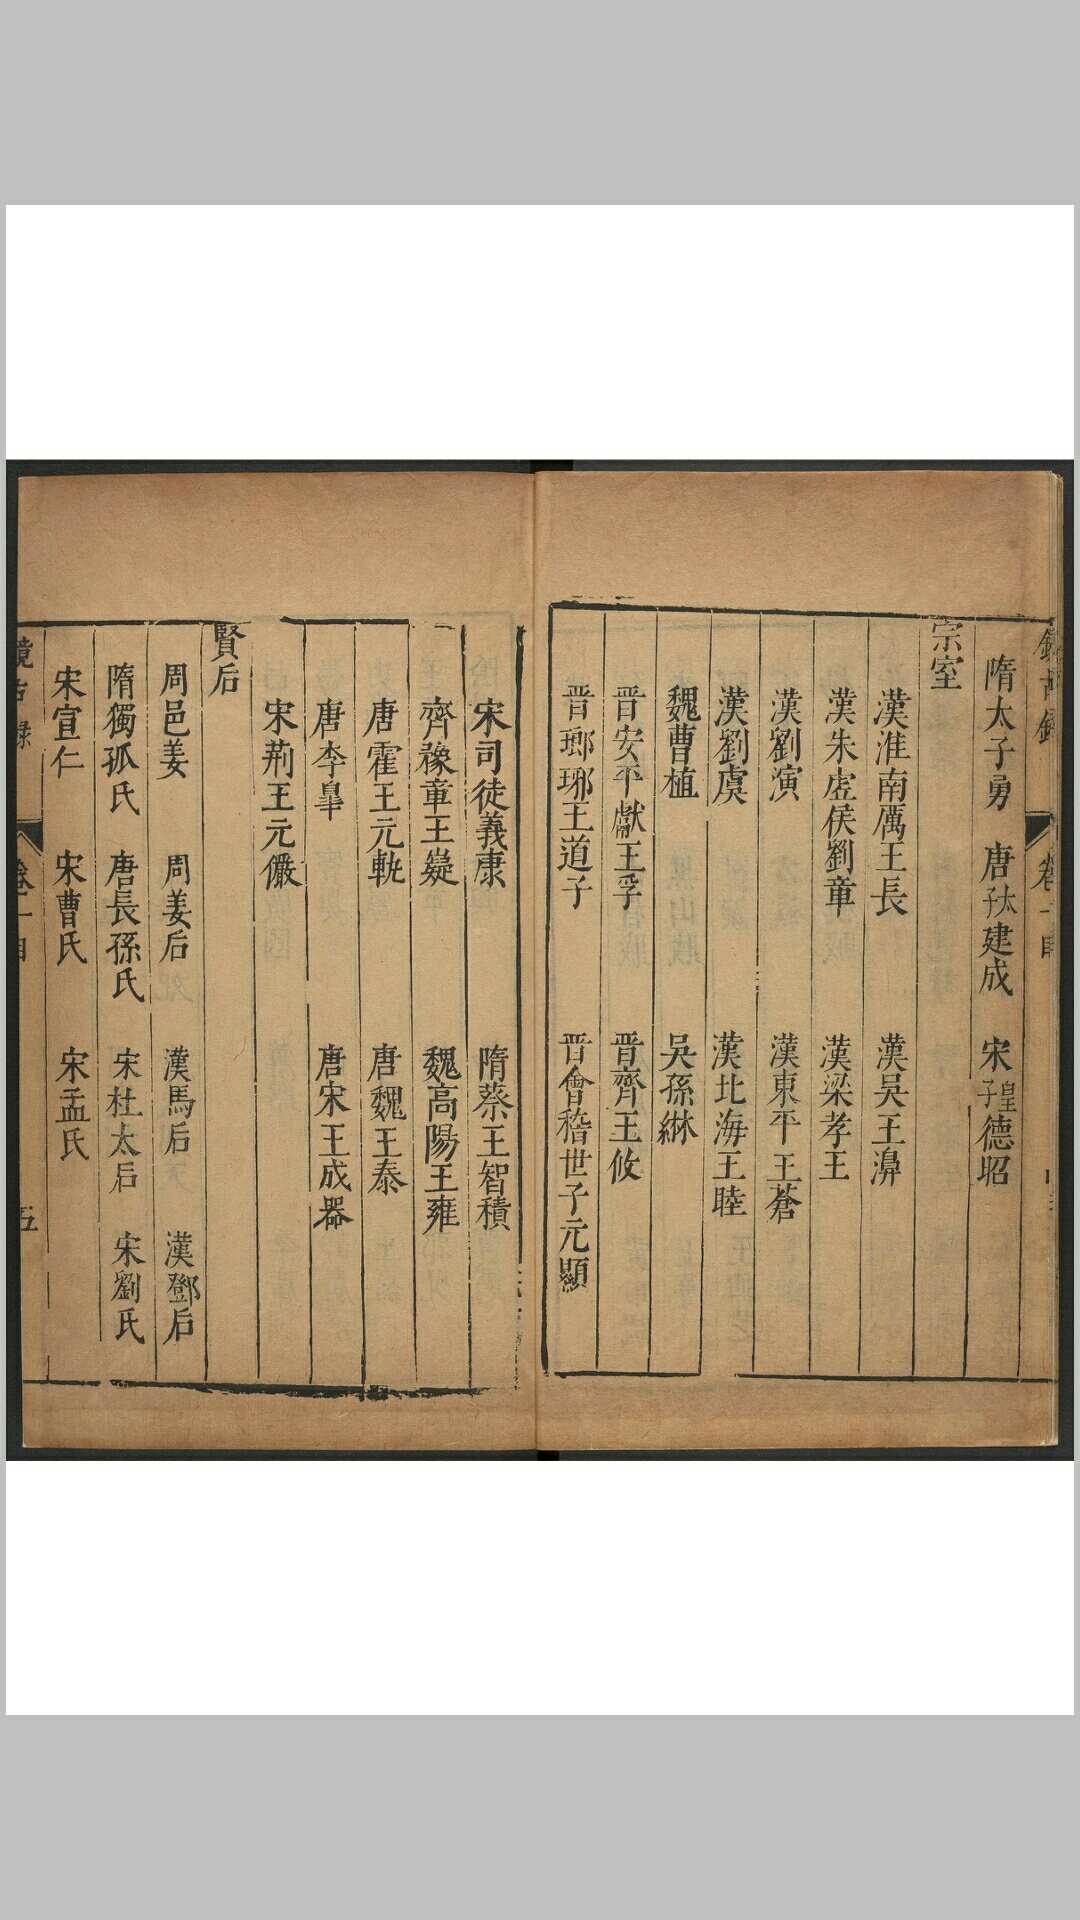 隋太子勇 唐太子建成 宋皇子德昭
宗室
漢淮南厲王長 漢吳王濞
漢朱虛侯劉章 漢梁孝王
漢劉演 漢東平王蒼
漢劉虞 漢北海王睦
魏曹植 吳孫綝
晉安平獻王孚 晉齊王攸
晉瑯琊王道子 晉會稽世子元顯
宋司徒義康 隋蔡王智積
齊豫章王嶷 魏高陽王雍
唐霍王元軌 唐魏王泰
唐李皐 唐宋王成器
宋荆王元儼
賢后
周邑姜 周姜后 漢馬后 漢鄧后
隋獨孤氏 唐長孫氏 宋杜太后 宋劉氏
宋宣仁 宋曹氏 宋孟氏
鏡古錄 卷一目 五